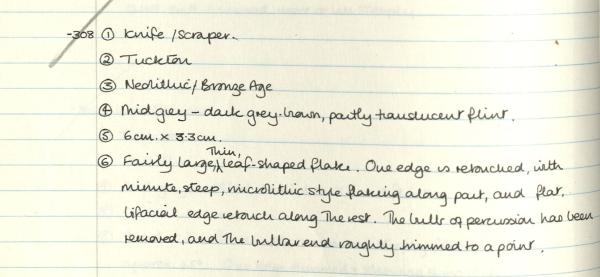 -308 ① Knife/Scraper.
② Tuckton
③ Neolithic/Bronze Age
④ Mid grey - dark grey-brown, partly translucent flint.
⑤ 6cm. x 3.3cm.
⑥ Fairly large, Thin, leaf-shaped flake. One edge is retouched, with
minute, steep, microlithic style flaking along part, and flat,
bifacial edge retouch along the rest. The bulb of percussion has been
removed, and the bulbar end roughly trimmed to a point.